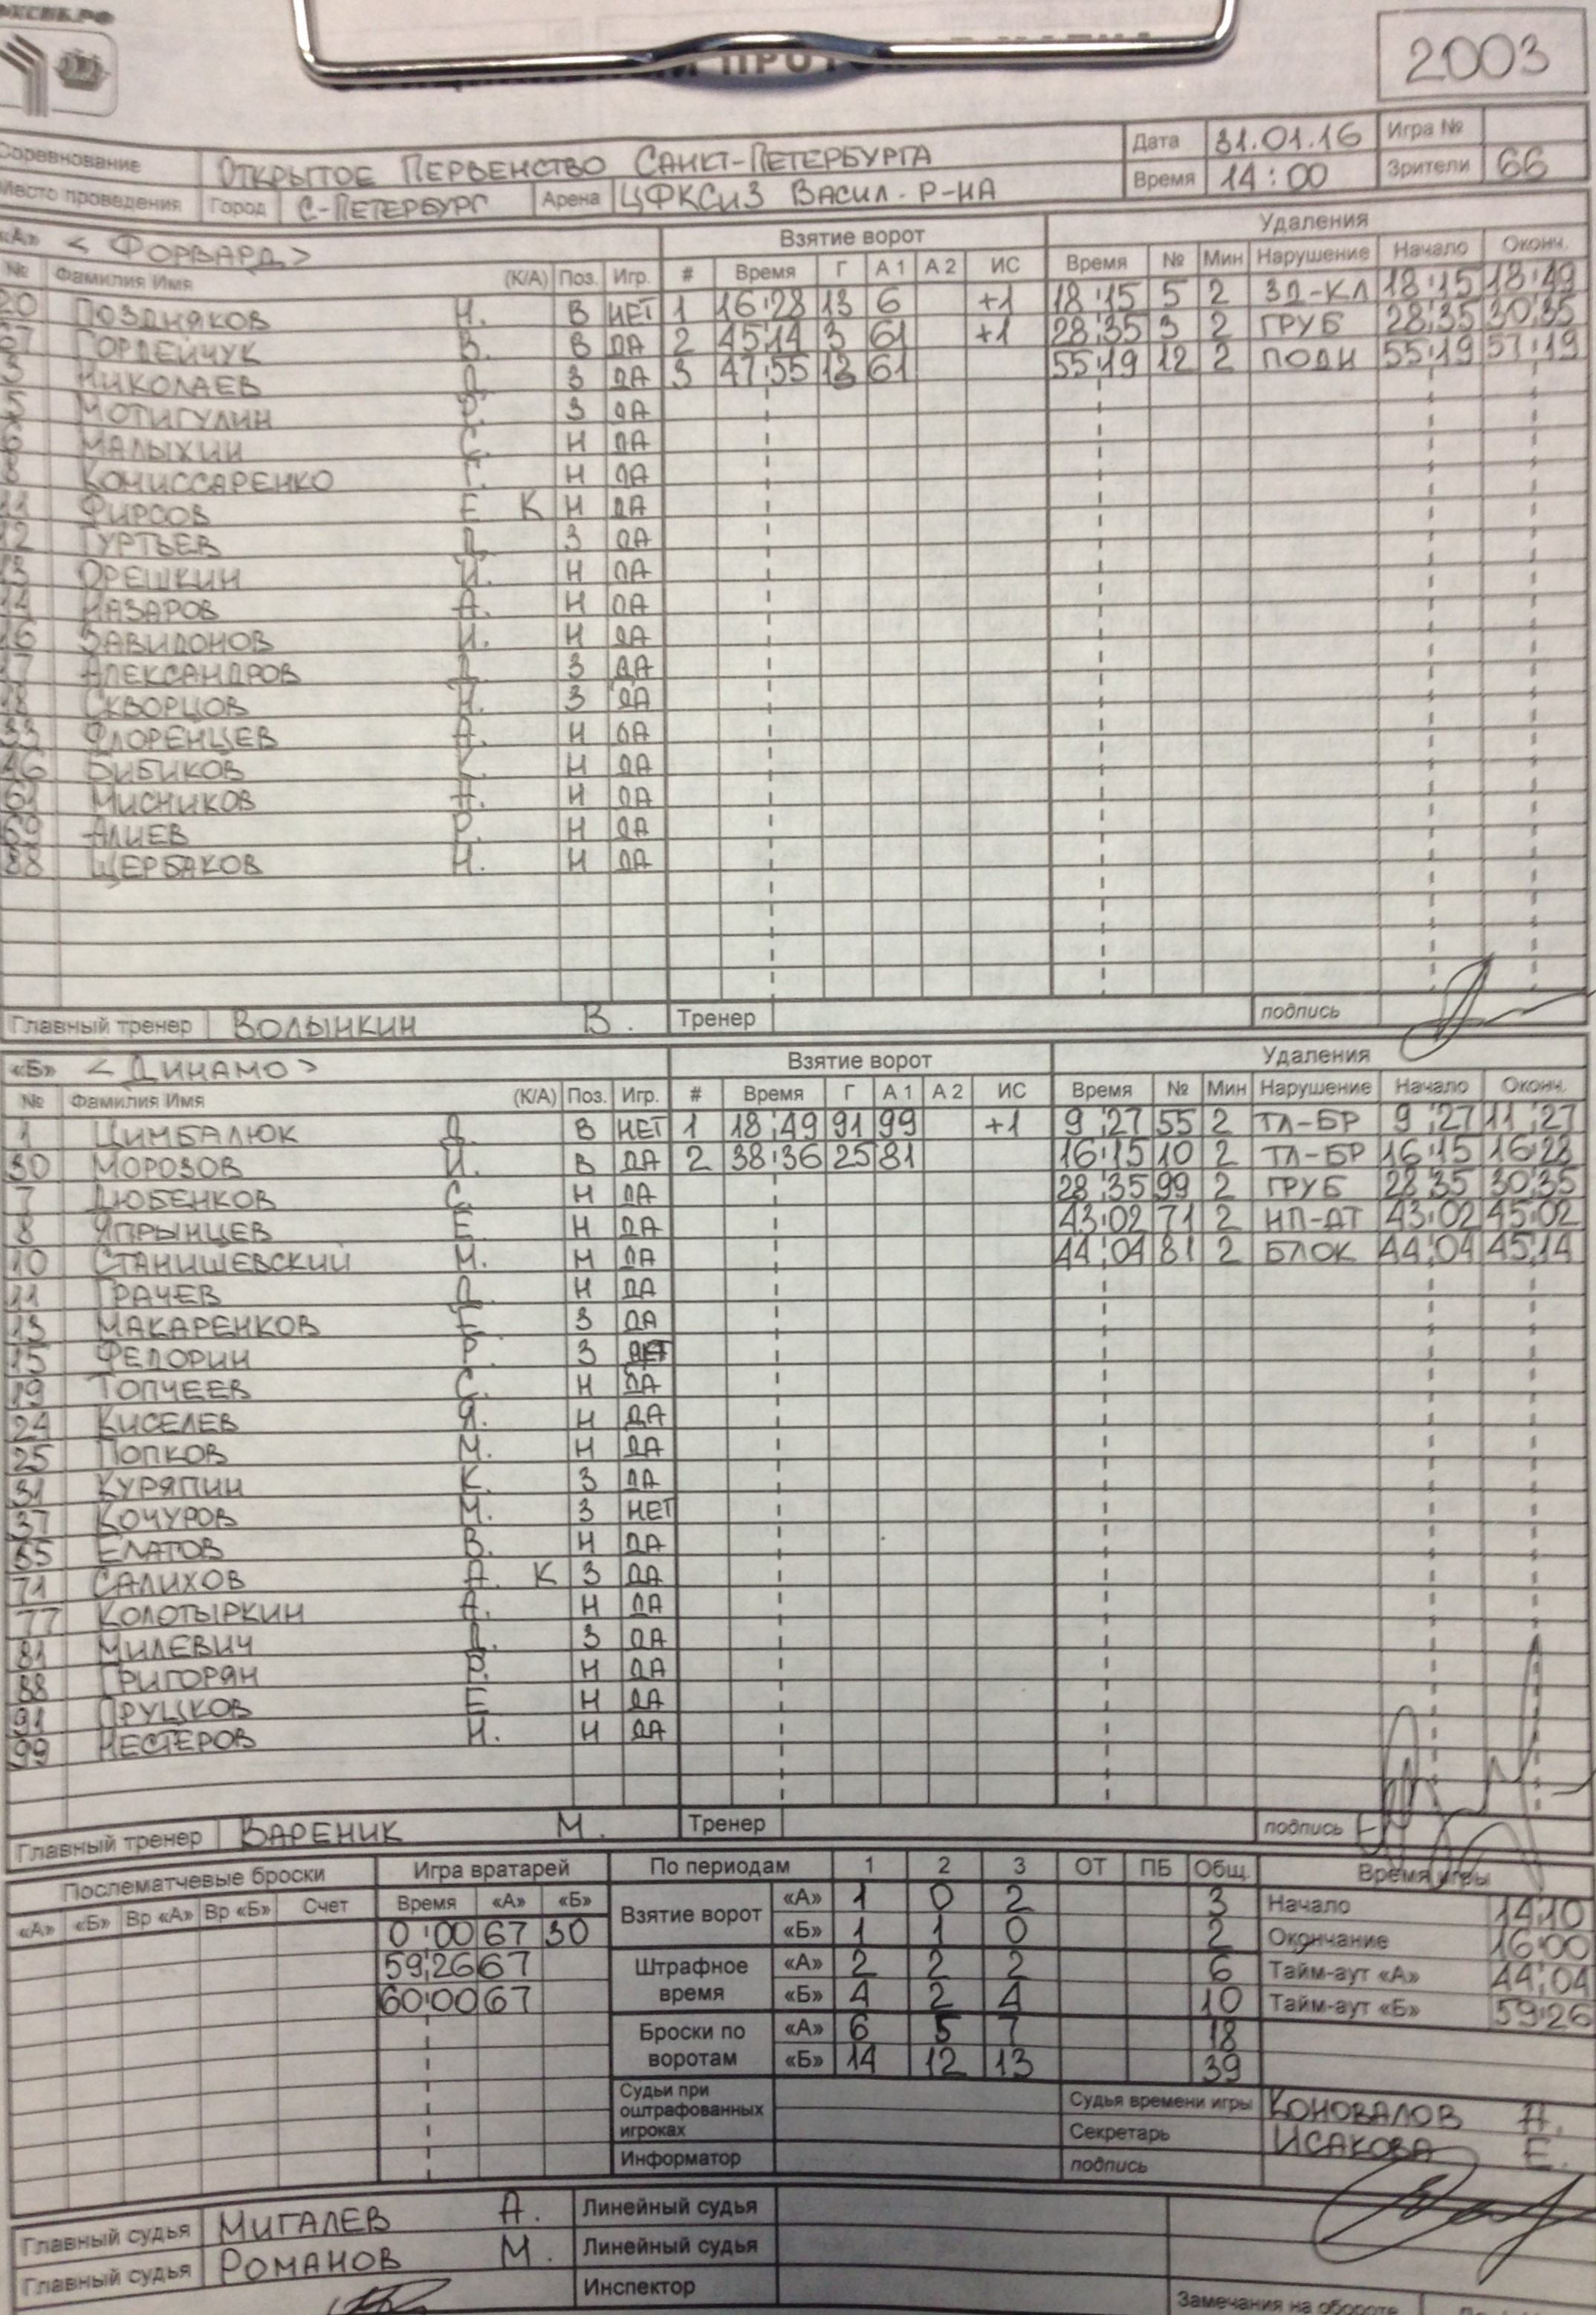 2003
Соревнование ОТКРЫТОЕ ПЕРВЕНСТВО САНКТ-ПЕТЕРБУРГА Дата 31.01.16 Игра №
Место проведения Город С-ПЕТЕРБУРГ Арена ЦФКСиЗ ВАСИЛ. Р-НА Время 14:00 Зрители 66
«А» <ФОРВАРД> Взятие ворот Удаления
№ Фамилия Имя (К/А) Поз. Игр. # Время Г А 1 А 2 ИС Время № Мин Нарушение Начало Оконч.
20 ПОЗДНЯКОВ Н. В НЕТ 1 16:28 13 6 +1 18:15 5 2 ЗД-КЛ 18:15 18:49
67 ГОРДЕЙЧУК В. В ДА 2 45:14 3 61 +1 28:35 3 2 ГРУБ 28:35 30:35
3 НИКОЛАЕВ Д. З ДА 3 47:55 13 61 55:19 12 2 ПОДН 55:19 57:19
5 МОТИГУЛИН Р. З ДА
6 МАЛЫХИН С. Н ДА
8 КОМИССАРЕНКО Г. Н ДА
11 ФИРСОВ Е К Н ДА
12 ГУРТЬЕВ Д. З ДА
13 ОРЕШКИН И. Н ДА
14 НАЗАРОВ А. Н ДА
16 ЗАВИДОНОВ И. Н ДА
17 АЛЕКСАНДРОВ Д. З ДА
18 СКВОРЦОВ Н. З ДА
33 ФЛОРЕНЦЕВ А. Н ДА
46 БИБИКОВ К. Н ДА
61 МИСНИКОВ А. Н ДА
69 АЛИЕВ Р. Н ДА
88 ЩЕРБАКОВ Н. Н ДА
Главный тренер ВОЛЫНКИН В. Тренер подпись
«Б» <ДИНАМО> Взятие ворот Удаления
№ Фамилия Имя (К/А) Поз. Игр. # Время Г А 1 А 2 ИС Время № Мин Нарушение Начало Оконч.
1 ЦИМБАЛЮК Д. В НЕТ 1 18:49 91 99 +1 9:27 55 2 ТЛ-БР 9:27 11:27
30 МОРОЗОВ И. В ДА 2 38:36 25 81 16:15 10 2 ТЛ-БР 16:15 16:28
7 ДЮБЕНКОВ С. Н ДА 28:35 99 2 ГРУБ 28:35 30:35
8 ЯПРЫНЦЕВ Е. Н ДА 43:02 71 2 НП-АТ 43:02 45:02
10 СТАНИШЕВСКИЙ М. Н ДА 44:04 81 2 БЛОК 44:04 45:14
11 ГРАЧЕВ Д. Н ДА
13 МАКАРЕНКОВ Е З ДА
15 ФЕДОРИН Р. З НЕТ
19 ТОПЧЕЕВ С. Н ДА
24 КИСЕЛЕВ Я. Н ДА
25 ПОПКОВ М. Н ДА
31 КУРЯПИН К. З ДА
37 КОЧУРОВ М. З НЕТ
55 ЕЛАТОВ В. Н ДА
71 САЛИХОВ А. К З ДА
77 КОЛОТЫРКИН А. Н ДА
81 МИЛЕВИЧ Д. З ДА
88 ГРИГОРЯН Р. Н ДА
91 ПРУЦКОВ Е Н ДА
99 НЕСТЕРОВ Н. Н ДА
Главный тренер ВАРЕНИК М. Тренер подпись
Послематчевые броски Игра вратарей По периодам 1 2 3 ОТ ПБ Общ. Время игры
«А» «Б» Вр «А» Вр «Б» Счет Время «А» «Б»
Взятие ворот «А» 1 0 2 3 Начало 14:10
0:00 67 30 «Б» 1 1 0 2 Окончание 16:00
59:26 67 Штрафное время «А» 2 2 2 6 Тайм-аут «А» 44:04
60:00 67 «Б» 4 2 4 10 Тайм-аут «Б» 59:26
Броски по воротам «А» 6 5 7 18
«Б» 14 12 13 39
Судьи при оштрафованных игроках Судья времени игры КОНОВАЛОВ А.
Секретарь ИСАКОВА Е.
Информатор подпись
Главный судья МИГАЛЕВ А. Линейный судья
Главный судья РОМАНОВ М. Линейный судья
Инспектор
Замечания на обороте